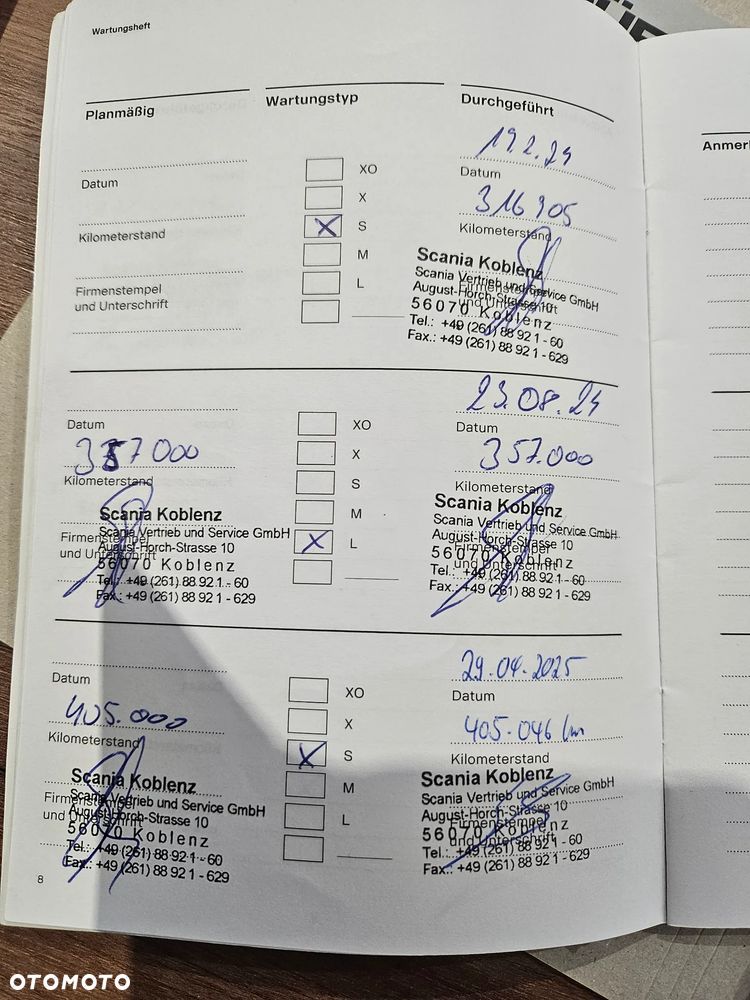 Wartungsheft
Planmäßig
Wartungstyp
Durchgeführt
19.2.24
Datum
XO
Datum
X
316 905
Kilometerstand
S
Kilometerstand
M
Scania Koblenz
Firmenstempel
und Unterschrift
L
Scania Vertrieb und Service GmbH
August-Horch-Strasse 10
56070 Koblenz
Tel.: +49 (261) 88 92 1 - 60
Fax.: +49 (261) 88 92 1 - 629
23.08.24
Datum
XO
Datum
357 000
X
357.000
Kilometerstand
S
Kilometerstand
Scania Koblenz
M
Scania Koblenz
Scania Vertrieb und Service GmbH
Firmenstempel
und Unterschrift
August-Horch-Strasse 10
56070 Koblenz
Tel.: +49 (261) 88 92 1 - 60
Fax.: +49 (261) 88 92 1 - 629
L
Scania Vertrieb und Service GmbH
August-Horch-Strasse 10
Firmenstempel
56070 Koblenz
und Unterschrift
Tel.: +49 (261) 88 92 1 - 60
Fax.: +49 (261) 88 92 1 - 629
29.04.2025
Datum
XO
Datum
405.000
X
405.046 km
Kilometerstand
S
Kilometerstand
Scania Koblenz
M
Scania Koblenz
Scania Vertrieb und Service GmbH
Firmenstempel
und Unterschrift
August-Horch-Strasse 10
56070 Koblenz
Tel.: +49 (261) 88 92 1 - 60
Fax.: +49 (261) 88 92 1 - 629
L
Scania Vertrieb und Service GmbH
August-Horch-Strasse 10
Firmenstempel
56070 Koblenz
und Unterschrift
Tel.: +49 (261) 88 92 1 - 60
Fax.: +49 (261) 88 92 1 - 629
8
OTOMOTO